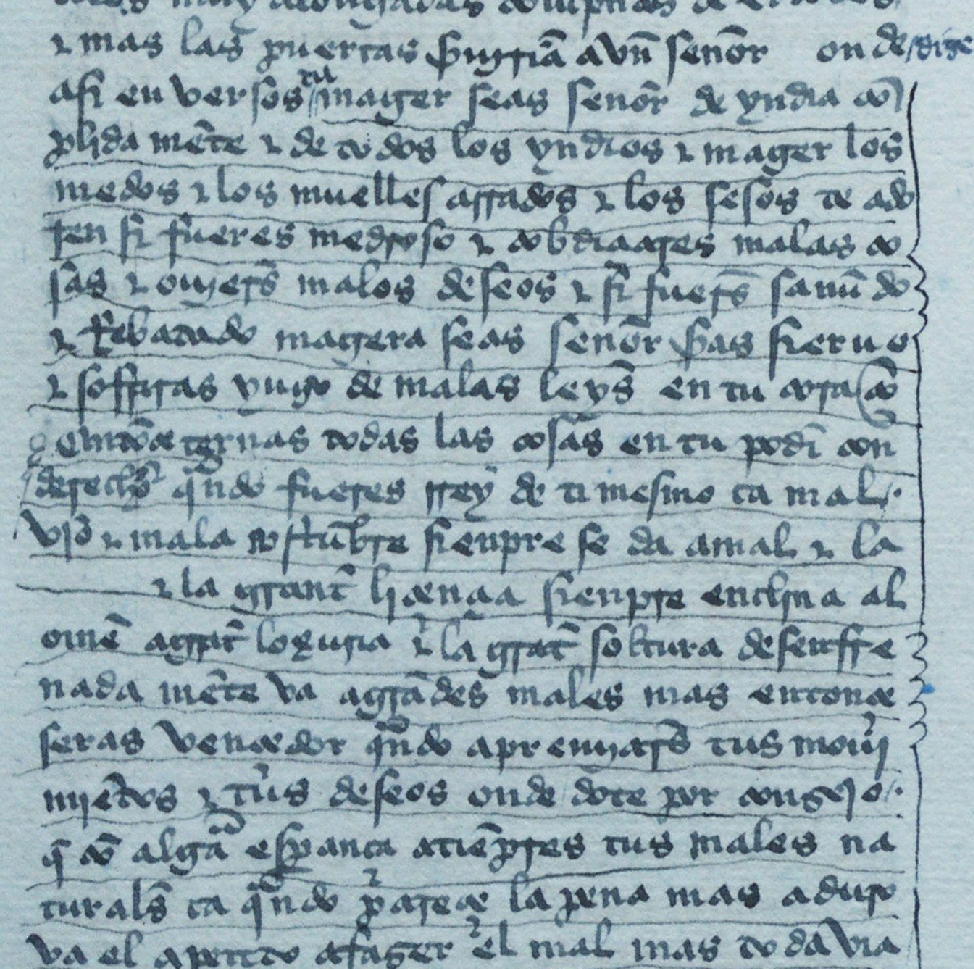 & mas las puertas seruirian a vn señor onde dize
asi en versos tu mager seas señor de yndia con
plida mẽte & de todos los yndios & mager los
medos & los muelles arrados & los sesos te ado
ren si fueres medroso & cobdiciares malas co
sas & ouierẽs malos deseos & si fuerẽs sañudo
& Rebatado magera seas señor seras sieruo
& soffriras yugo de malas leyẽs en tu coraçõ
entõce ternas todas las cosas en tu podẽr con
derecho quãdo fueres rrey de ti mesmo ca mal
vso & mala costũbre sienpre se da a mal & la
& la grant liçençia sienpre enclina al
omẽ a grãt loxuria & la grãt soltura desenffre
nada mẽte va a grãdes males mas entonçe
seras vençedor quãdo apremiarẽs tus moui
mientos & tus deseos onde dote por consejo
q̃ cõ algũa esperança atienpres tus males na
turalẽs ca quãdo pareçe la pena mas aduro
va el apetito a fazer el mal mas todavia